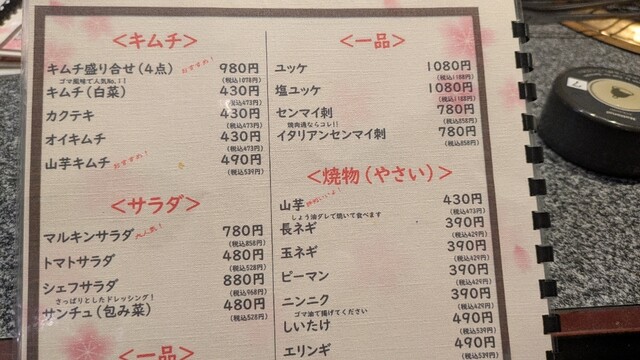 <キムチ>
キムチ盛り合せ(4点) おすすめ! 980円
(税込1078円)
ゴマ風味で人気No.1!
キムチ(白菜) 430円
(税込473円)
カクテキ 430円
(税込473円)
オイキムチ 430円
(税込473円)
山芋キムチ おすすめ! 490円
(税込539円)
<サラダ>
マルキンサラダ 大人気! 780円
(税込858円)
トマトサラダ 480円
(税込528円)
シェフサラダ 880円
(税込968円)
さっぱりとしたドレッシング!
サンチュ(包み菜) 480円
(税込528円)
<一品>
<一品>
ユッケ 1080円
(税込1188円)
塩ユッケ 1080円
(税込1188円)
センマイ刺 780円
(税込858円)
焼肉通ならコレ!!
イタリアンセンマイ刺 780円
(税込858円)
<焼物(やさい)>
山芋 430円
(税込473円)
しょう油ダレで焼いて食べます
長ネギ 390円
(税込429円)
玉ネギ 390円
(税込429円)
ピーマン 390円
(税込429円)
ニンニク 390円
(税込429円)
ゴマ油で揚げてください
しいたけ 490円
(税込539円)
エリンギ 490円
(税込539円)